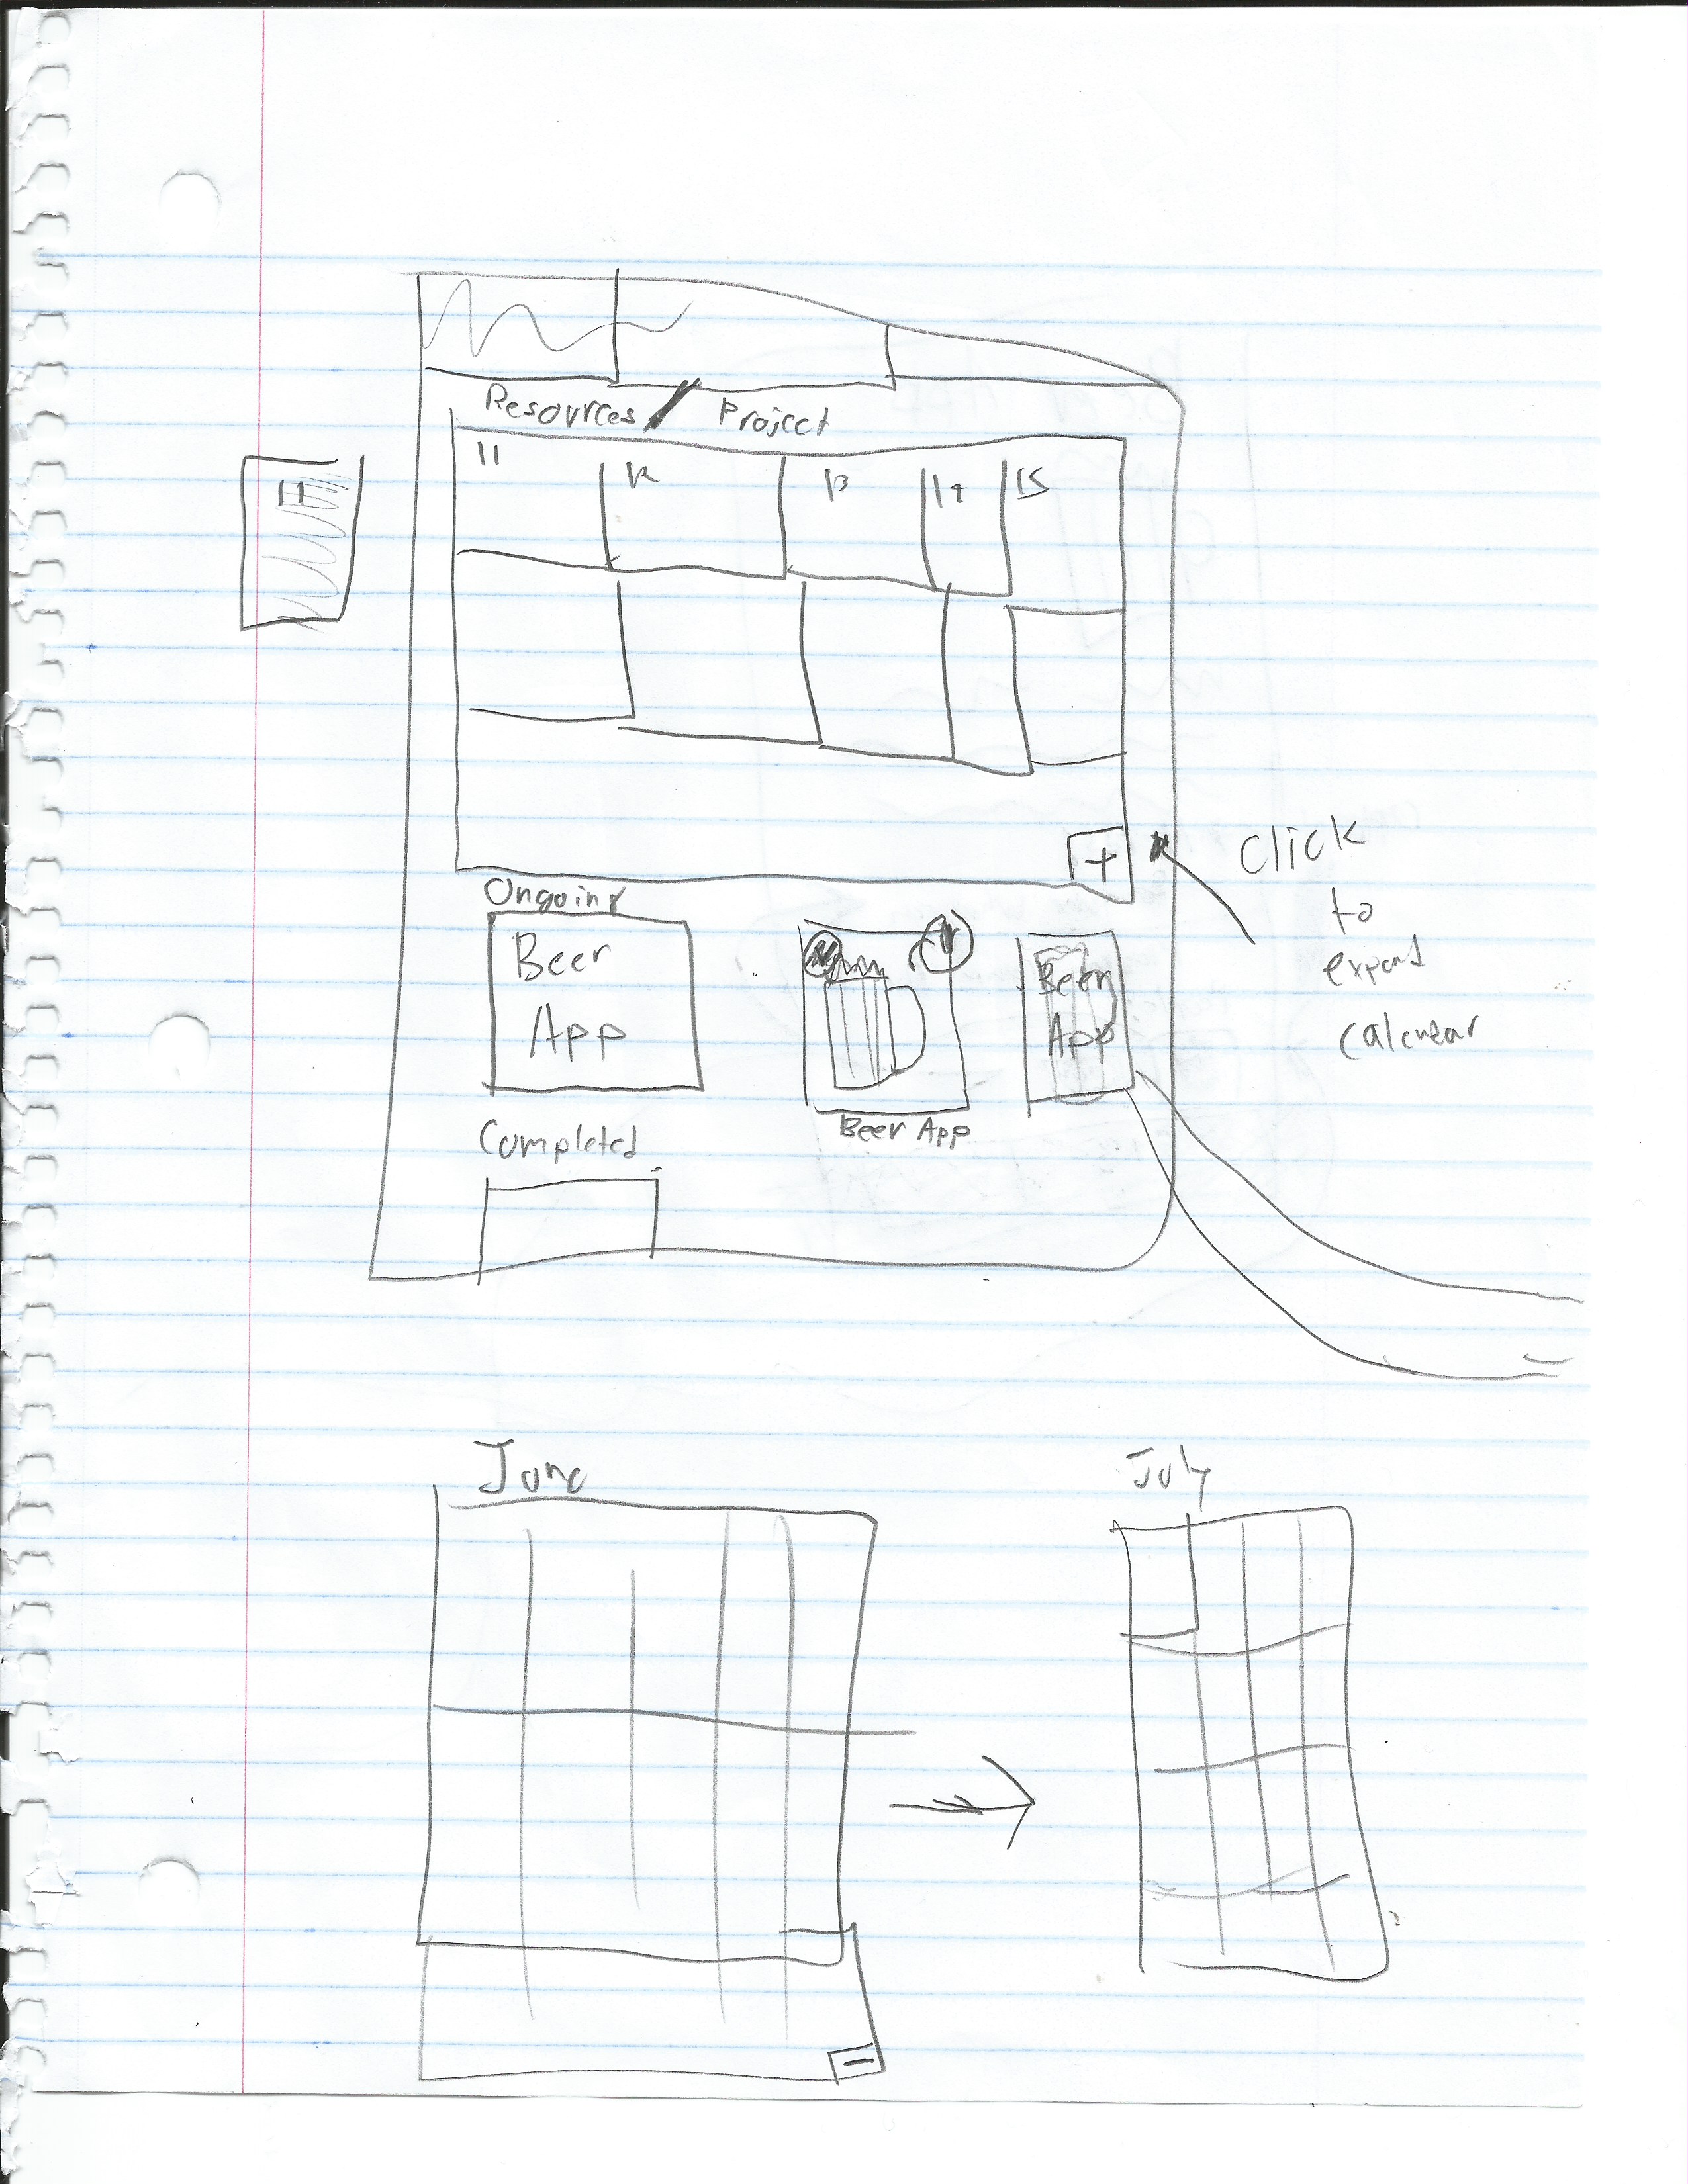 Resources / Project
11 12 13 14 15
11
+
Click
to
expand
calendar
Ongoing
Beer
App
Beer App
Beer
App
Completed
June
July
-